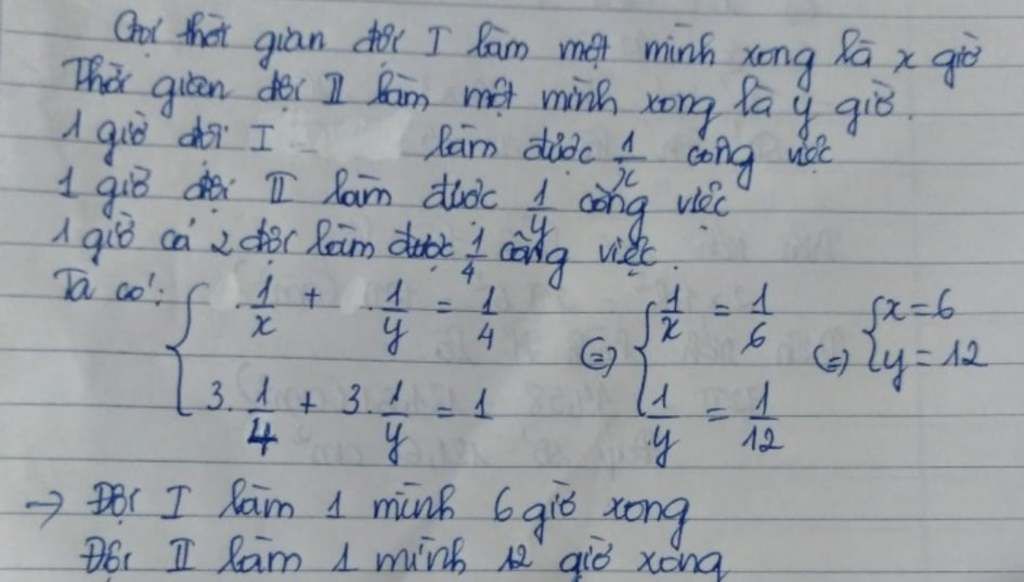 Gọi thời gian đội I làm một mình xong là x giờ
Thời gian đội II làm một mình xong là y giờ.
1 giờ đội I làm được 1/x công việc
1 giờ đội II làm được 1/y công việc
1 giờ cả 2 đội làm được 1/4 công việc.
Ta có: { 1/x + 1/y = 1/4 (=) { 1/x = 1/6 (=) { x = 6
3. 1/4 + 3. 1/y = 1 1/y = 1/12 y = 12
→ Đội I làm 1 mình 6 giờ xong
Đội II làm 1 mình 12 giờ xong